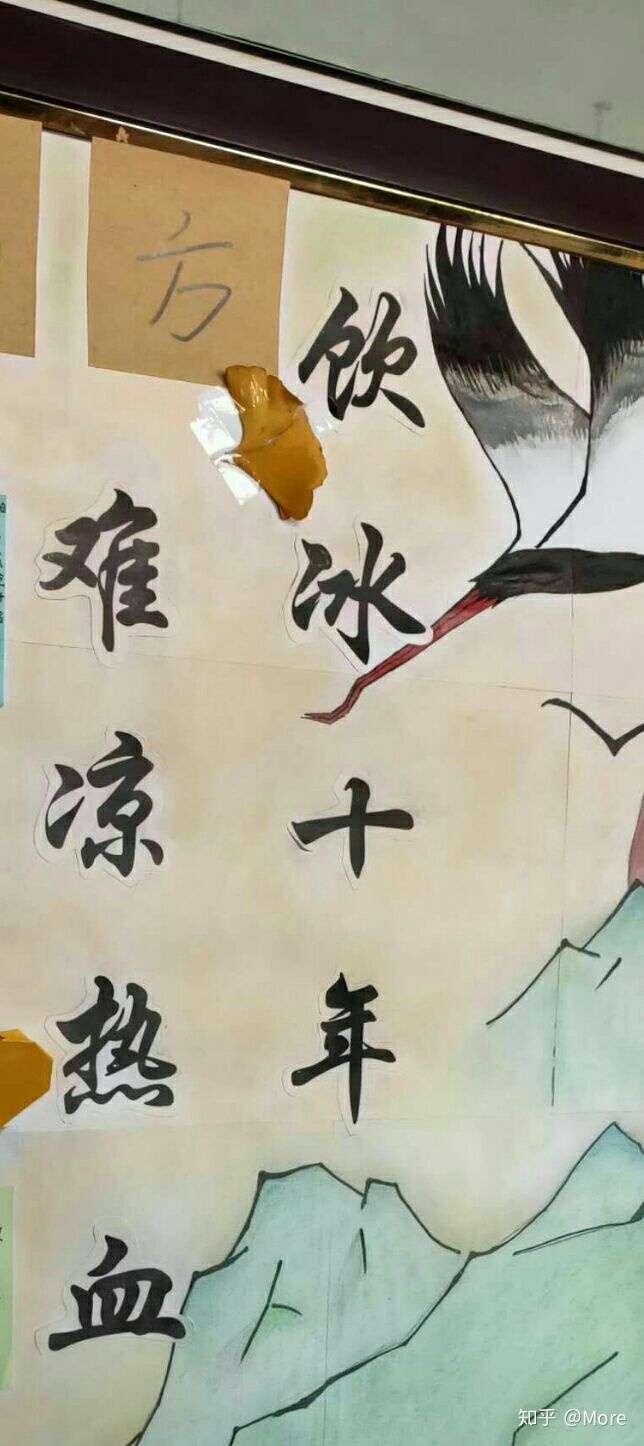 方
饮冰十年
难凉热血
知乎 @More